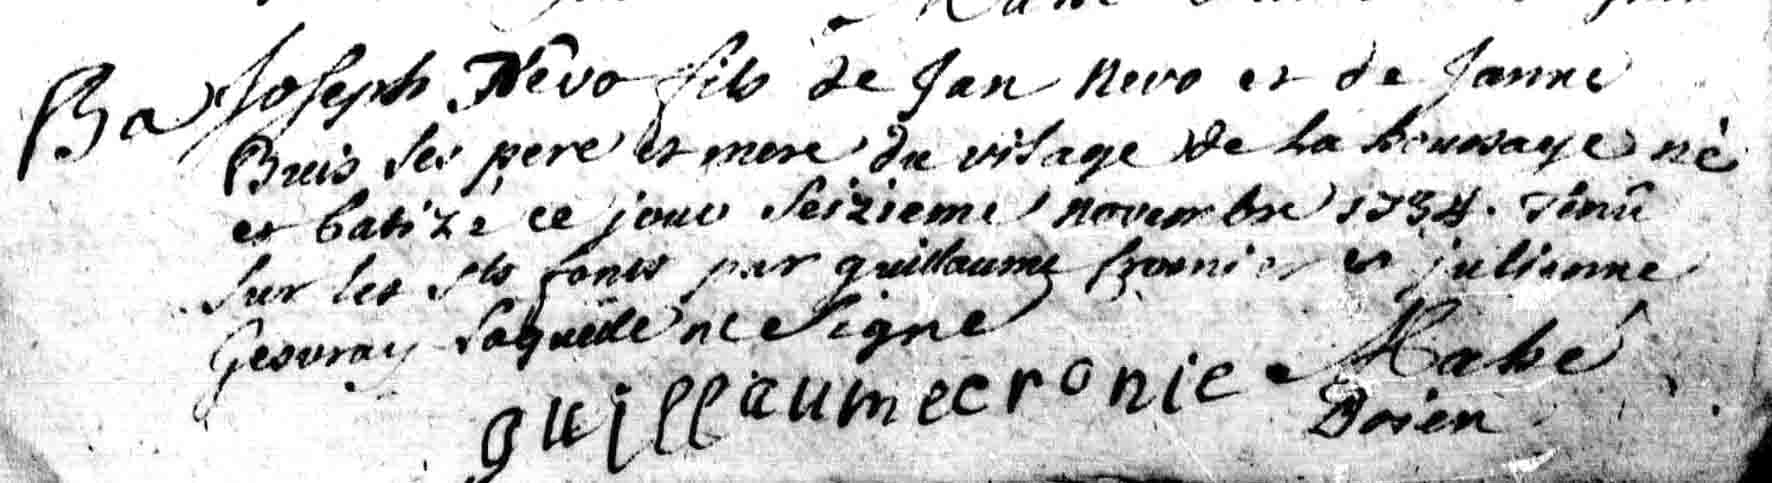 Ba Joseph Nevo fils de Jan nevo et de Janne
Buis ses pere et mere du vilage de la houssaye né
et batizé ce jour seizieme novembre 1734. tenû
sur les sts fonts par guillaume et julienne
Gesvray laquelle ne signe
guillaumecronie Mahé
Doien